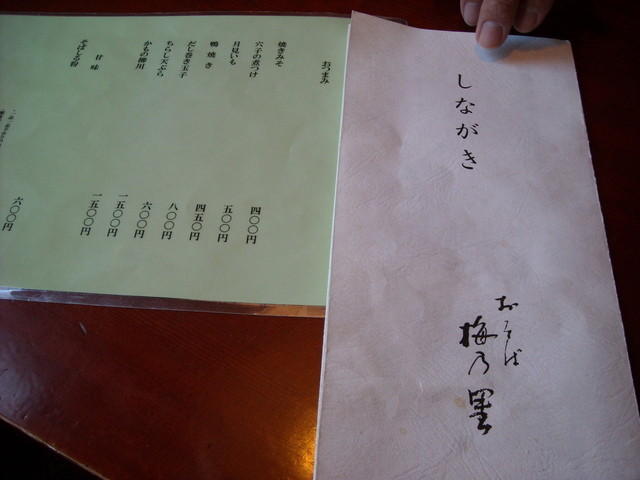 しながき
おそば
梅乃里
おつまみ
焼きみそ 四〇〇円
穴子の煮つけ 五〇〇円
月見いも 四五〇円
鴨焼き 八〇〇円
だし巻き玉子 六〇〇円
ちらし天ぷら 一五〇〇円
かもの柳川 一五〇〇円
甘味
そばしる粉 六〇〇円